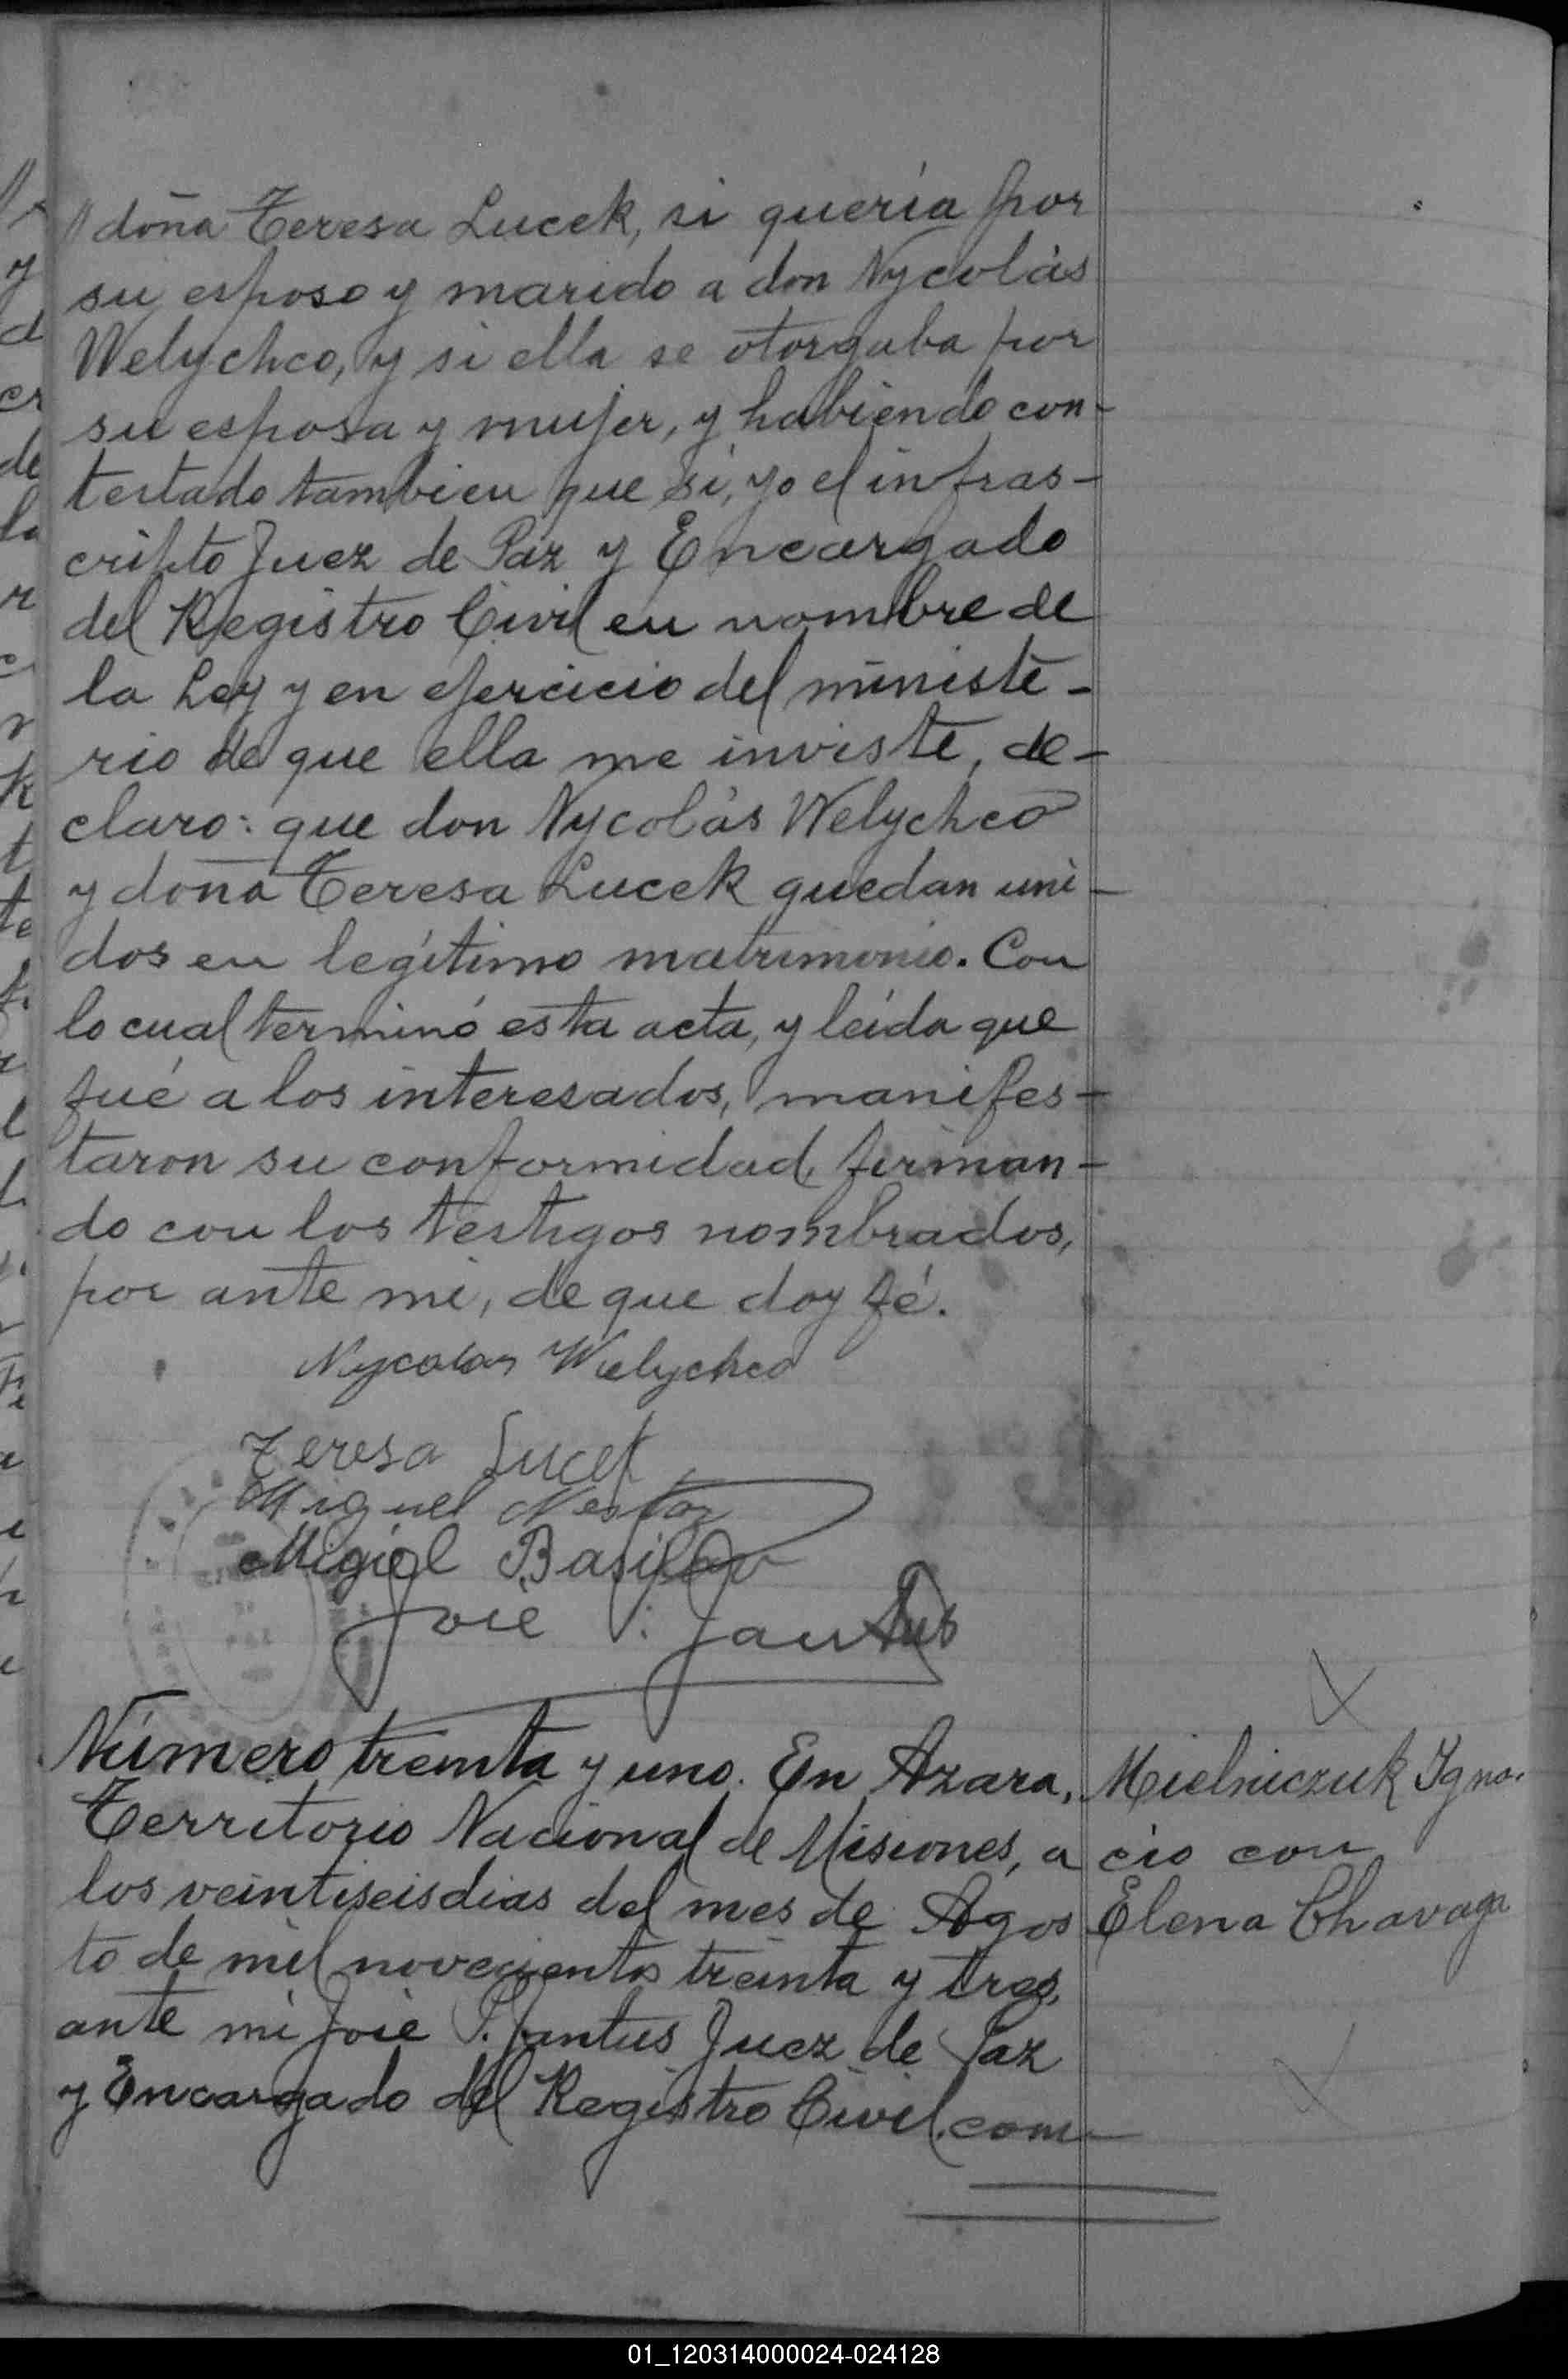 // doña Teresa Lucek, si quería por
su esposo y marido a don Nycolás
Welychco, y si ella se otorgaba por
su esposa y mujer, y habiendo con-
testado tambien que si, yo el infras-
cripto Juez de Paz y Encargado
del Registro Civil en nombre de
la Ley y en ejercicio del ministe-
rio de que ella me inviste, de-
claro: que don Nycolás Welychco
y doña Teresa Lucek quedan uni-
dos en legítimo matrimonio. Con
lo cual terminó esta acta, y leída que
fué a los interesados, manifes-
taron su conformidad, firman-
do con los testigos nombrados,
por ante mi, de que doy fé.
Nycolas Wielychco
Teresa Lucek
Miguel Nestor
Migiel
José P. Jantus
Número treinta y uno. En Azara,
Territorio Nacional de Misiones, a
los veintiseis dias del mes de Agos
to de mil novecientos treinta y tres,
ante mi José P. Jantus Juez de Paz
y Encargado del Registro Civil, com-
Mielniczuk Igna-
cio con
Elena Chavaga
01_120314000024-024128